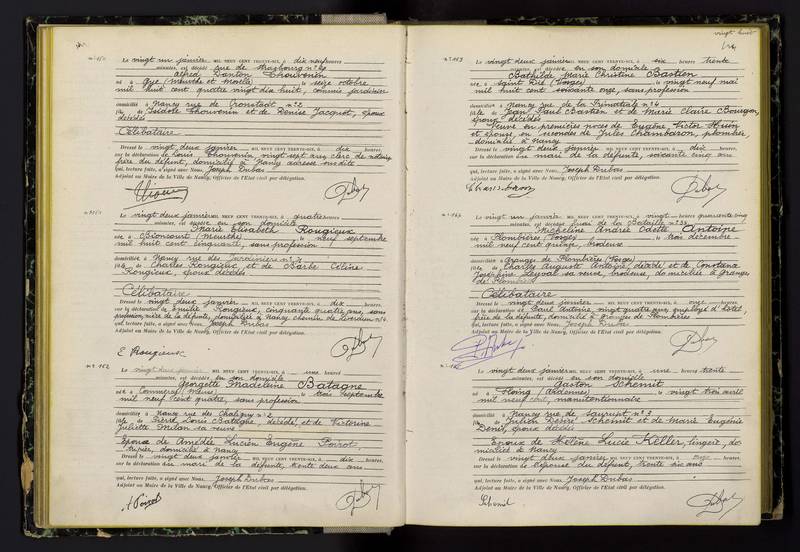 Le vingt un janvier MIL NEUF CENT TRENTE-SIX, à dix neuf heures
minutes, est décédé rue de Strasbourg nº
Alfred Danton Thouvenin
né à (Meurthe et Moselle) le seize octobre
mil huit cent quatre vingt dix huit, commis jardinier
domicilié à Nancy rue de Cronstadt nº 2
fils de Isidore Thouvenin et de Denise Jacquot, époux
décédés
Célibataire
Dressé le vingt deux janvier MIL NEUF CENT TRENTE-SIX, à dix heures,
sur la déclaration de Louis Thouvenin, vingt sept ans, clerc de notaire
frère du défunt, domicilié à Nancy adresse susdite
qui, lecture faite, a signé avec Nous, Joseph Dubas
Adjoint au Maire de la Ville de Nancy, Officier de l'Etat civil par délégation.
Le vingt deux janvier MIL NEUF CENT TRENTE-SIX, à quatre heures
minutes, est décédée en son domicile
Marie Elisabeth Rougieux
née à Bioncourt (Meurthe) le neuf septembre
mil huit cent cinquante, sans profession
domiciliée à Nancy rue des Jardiniers nº
fille de Charles Rougieux et de Barbe Céline
Rougieux, époux décédés
Célibataire
Dressé le vingt deux janvier MIL NEUF CENT TRENTE-SIX, à dix heures,
sur la déclaration de Emilie Rougieux, cinquante quatre ans, sans
profession, nièce de la défunte, domiciliée à Nancy chemin de
qui, lecture faite, a signé avec Nous, Joseph Dubas
Adjoint au Maire de la Ville de Nancy, Officier de l'Etat civil par délégation.
E Rougieux
Nº 162
Le vingt deux janvier MIL NEUF CENT TRENTE-SIX, à une heure
minutes, est décédée en son domicile
Georgette Madeleine Batagne
née à Commercy (Meuse) le trois septembre
mil neuf cent quatre, sans profession
domiciliée à Nancy rue des Chaligny nº 2
fille de Pierre Louis Batagne, décédé, et de Victorine
Juliette Milan sa veuve
Epouse de Amédée Lucien Eugène Poirot
tripier, domicilié à Nancy
Dressé le vingt deux janvier MIL NEUF CENT TRENTE-SIX, à dix heures,
sur la déclaration du mari de la défunte, trente deux ans
qui, lecture faite, a signé avec Nous, Joseph Dubas
Adjoint au Maire de la Ville de Nancy, Officier de l'Etat civil par délégation.
A Poirot
vingt huit
Nº 163
Le vingt deux janvier MIL NEUF CENT TRENTE-SIX, à six heures trente
minutes, est décédée en son domicile
Bathilde Marie Christine Bastien
née à Saint Dié (Vosges) le vingt neuf mai
mil huit cent soixante onze, sans profession
domiciliée à Nancy rue de la Primatiale nº 4
fille de Jean Paul Bastien et de Marie Claire Bourgon,
époux décédés
Veuve en premières noces de Eugène Victor Husson
et épouse, en secondes de Jules Chambaron, plombier,
domicilié à Nancy
Dressé le vingt deux janvier MIL NEUF CENT TRENTE-SIX, à dix heures,
sur la déclaration du mari de la défunte, soixante cinq ans
qui, lecture faite, a signé avec Nous, Joseph Dubas
Adjoint au Maire de la Ville de Nancy, Officier de l'Etat civil par délégation.
Nº 164
Le vingt un janvier MIL NEUF CENT TRENTE-SIX, à vingt heures quarante cinq
minutes, est décédée quai de la Bataille nº
Micheline Andrée Odette Antoine
née à Plombières (Vosges) le trois décembre
mil neuf cent quinze, brodeuse
domiciliée à Granges de Plombières (Vosges)
fille de Charles Auguste Antoine, décédé, et de Constance
Joséphine sa veuve, brodeuse, domiciliée à Granges
de Plombières
Célibataire
Dressé le vingt deux janvier MIL NEUF CENT TRENTE-SIX, à onze heures,
sur la déclaration de Paul Antoine, vingt quatre ans, employé d'hôtel,
frère de la défunte, domicilié à Granges de Plombières
qui, lecture faite, a signé avec Nous, Joseph Dubas
Adjoint au Maire de la Ville de Nancy, Officier de l'Etat civil par délégation.
Le vingt deux janvier MIL NEUF CENT TRENTE-SIX, à une heure trente
minutes, est décédé en son domicile
Gaston Schemit
né à Floing (Ardennes) le vingt trois avril
mil neuf cent, manutentionnaire
domicilié à Nancy rue de nº 3
fils de Julien Désiré Schemit et de Marie Eugénie
Denis, époux décédés
Epoux de Hélène Lucie Keller, lingère, do
miciliée à Nancy
Dressé le vingt deux janvier MIL NEUF CENT TRENTE-SIX, à onze heures,
sur la déclaration de l'épouse du défunt, trente six ans
qui, lecture faite, a signé avec Nous, Joseph Dubas
Adjoint au Maire de la Ville de Nancy, Officier de l'Etat civil par délégation.
Schemit